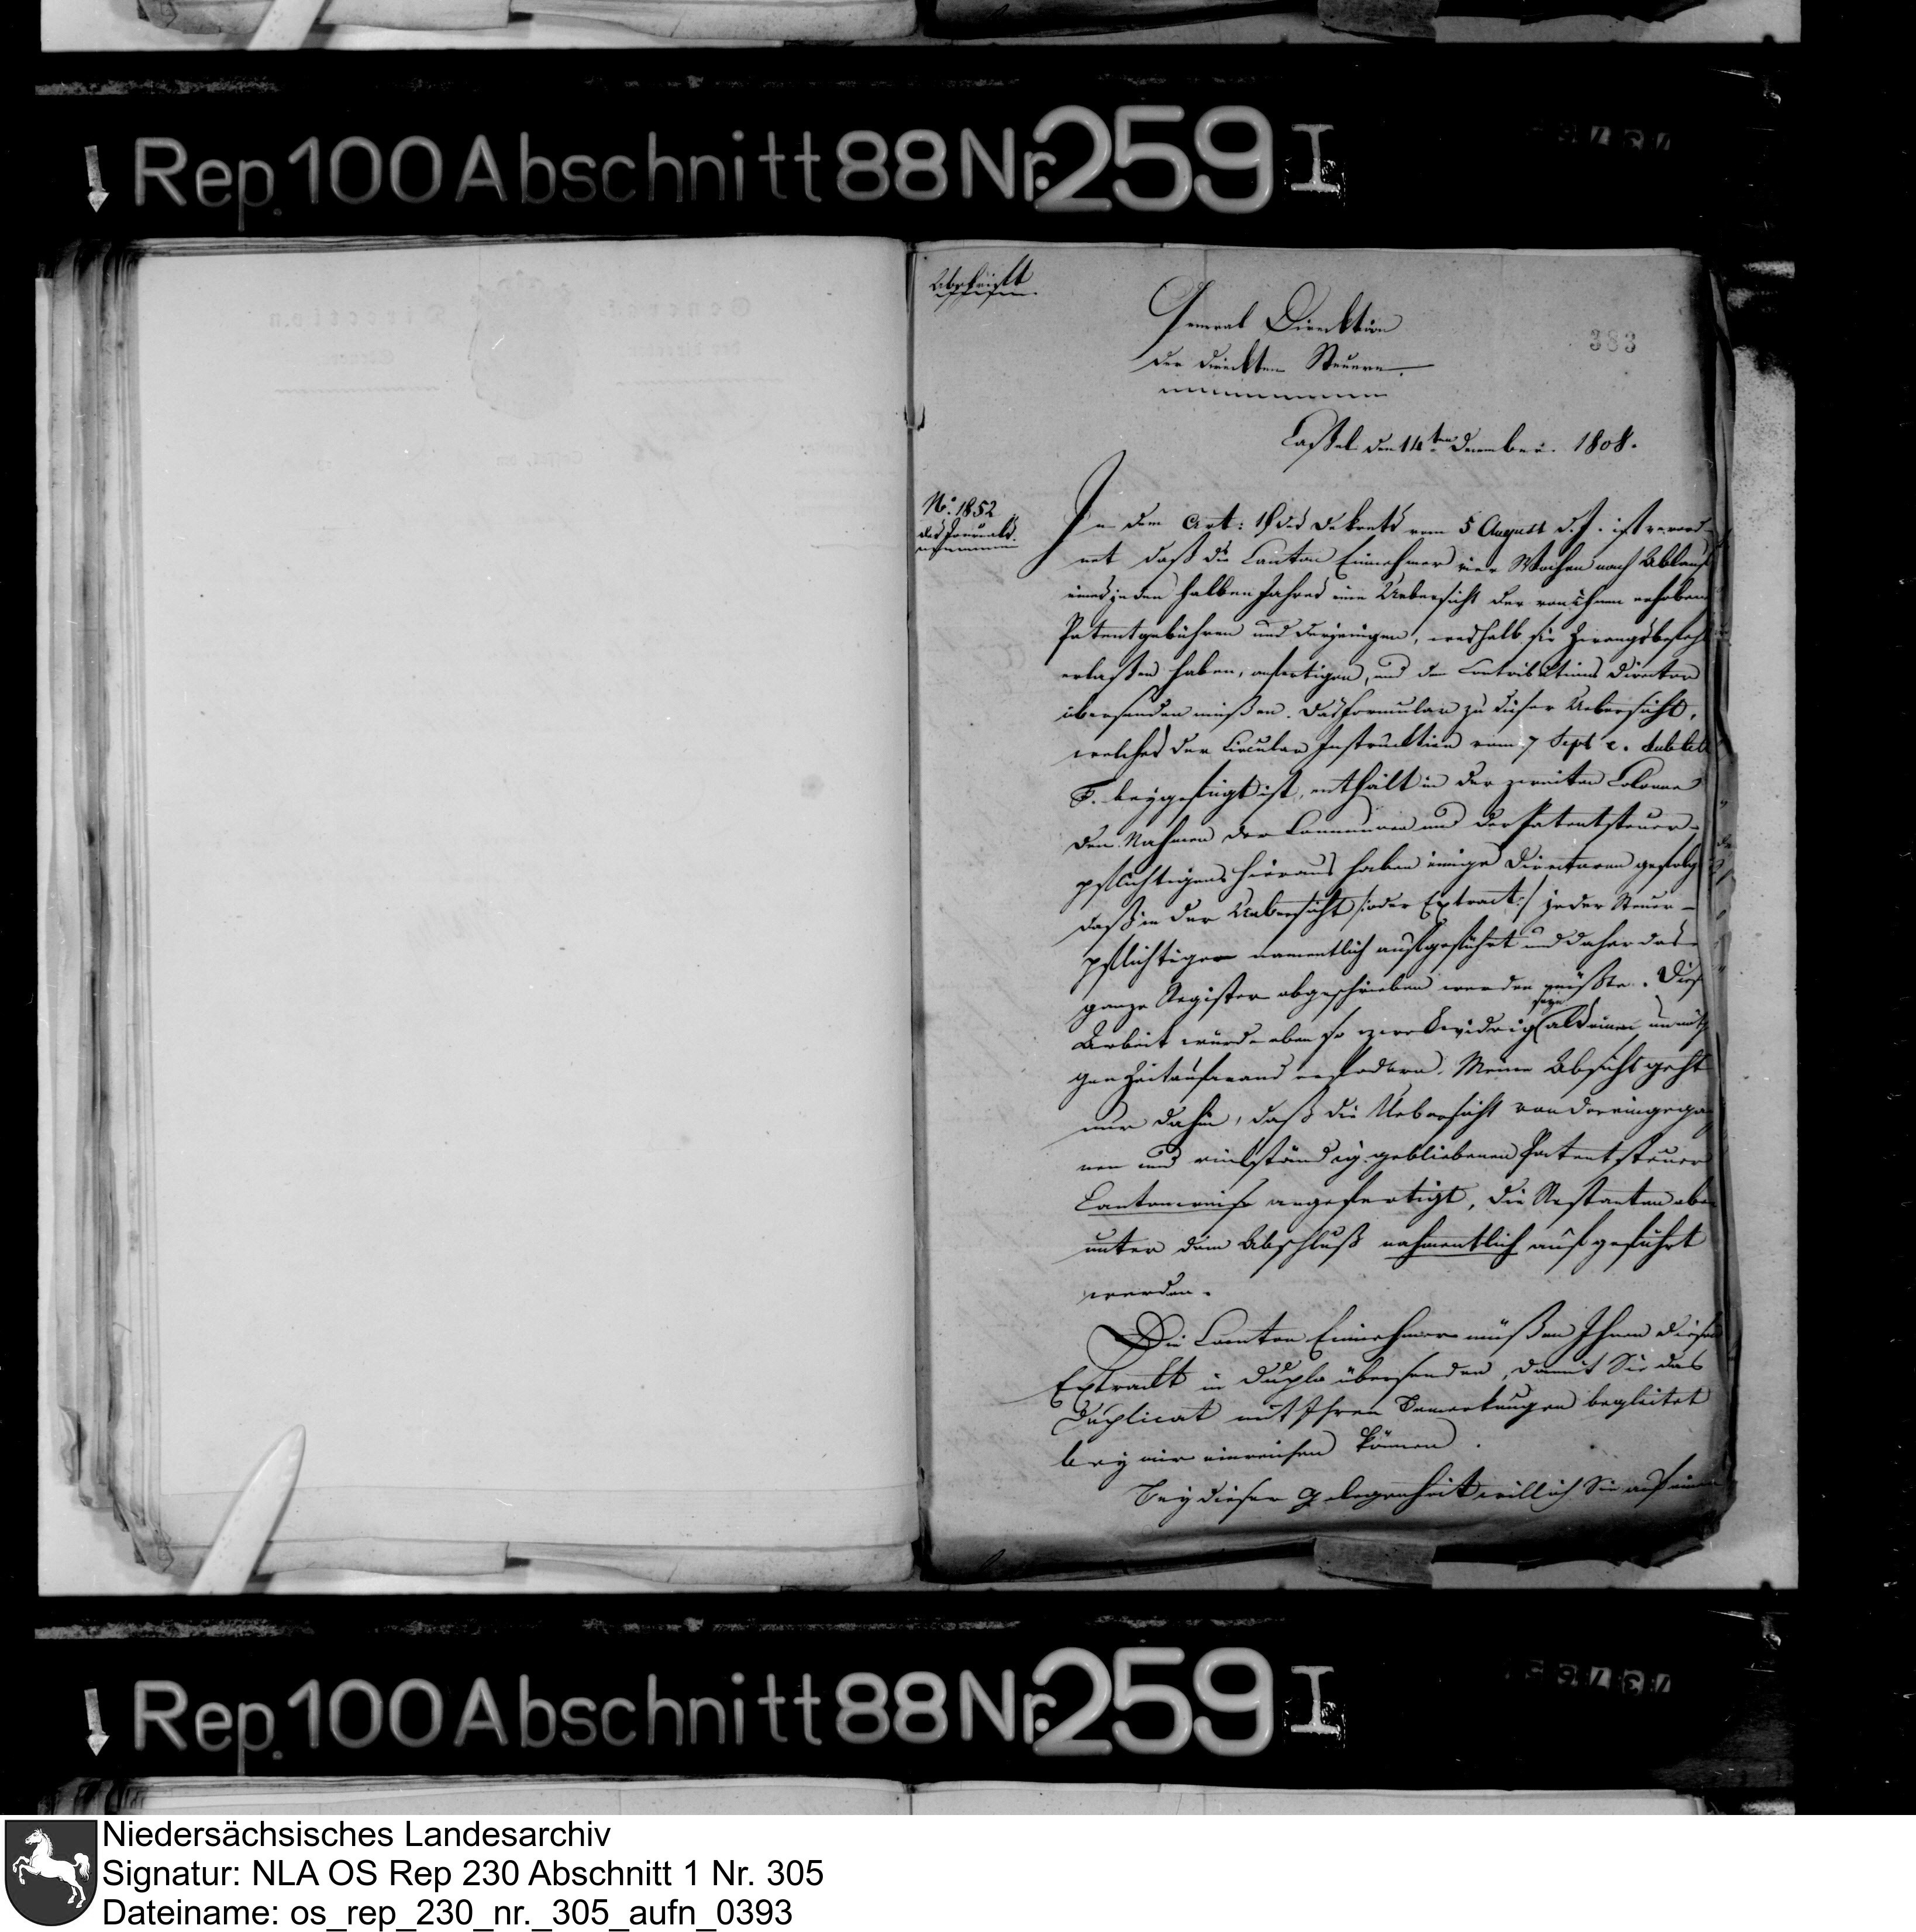 Rep. 100 Abschnitt 88 Nr. 259 I
Abschrift
General Direktion
der direkten Steuern.
383
Cassel den 14ten December. 1808.
No. 1852
des Journals.
In dem Art: 18 des Dekrets vom 5 August d. J. ist verord-
net daß die Canton Einnehmer vier Wochen nach Ablauf
eines jeden halben Jahres eine Uebersicht der von ihnen erhoben
Patentgebühren und derjenigen, weshalb sie Zwangsbefehl
erlaßen haben, anfertigen, und dem Contributions Director
übersenden müßen. Das Formular zu dieser Uebersicht,
welches der Circular Instruktion vom 7 Sept c. sub lit
F. beygefügt ist, enthält in der zweiten Colonne
den Nahmen der Communen und der Patentsteuer-
pflichtigen hieraus haben einige Directoren gefolg
daß in der Uebersicht /:oder Extract:/ jeder Steuer-
pflichtiger namentlich aufgeführt und daher das
ganze Register abgeschrieben werden müßte. Diese
Arbeit würde eben so zweckwidrig seyn als einen unnöthi
gen Zeitaufwand erfodern. Meine Absicht geht
nur dahin, daß die Uebersicht von der eingegange
nen und rückständig gebliebenen Patentsteuer
Cantonweise angefertigt, die Restanten aber
unter dem Abschluß nahmentlich aufgeführt
werden.
Die Canton Einnehmer müßen Ihnen diesen
Extrackt in Duplo übersenden, damit Sie das
Duplicat mit Ihren Bemerkungen begleitet
bey mir einreichen können.
Bey dieser Gelegenheit will ich Sie auf einen
Rep. 100 Abschnitt 88 Nr. 259 I
Niedersächsisches Landesarchiv
Signatur: NLA OS Rep 230 Abschnitt 1 Nr. 305
Dateiname: os_rep_230_nr._305_aufn_0393